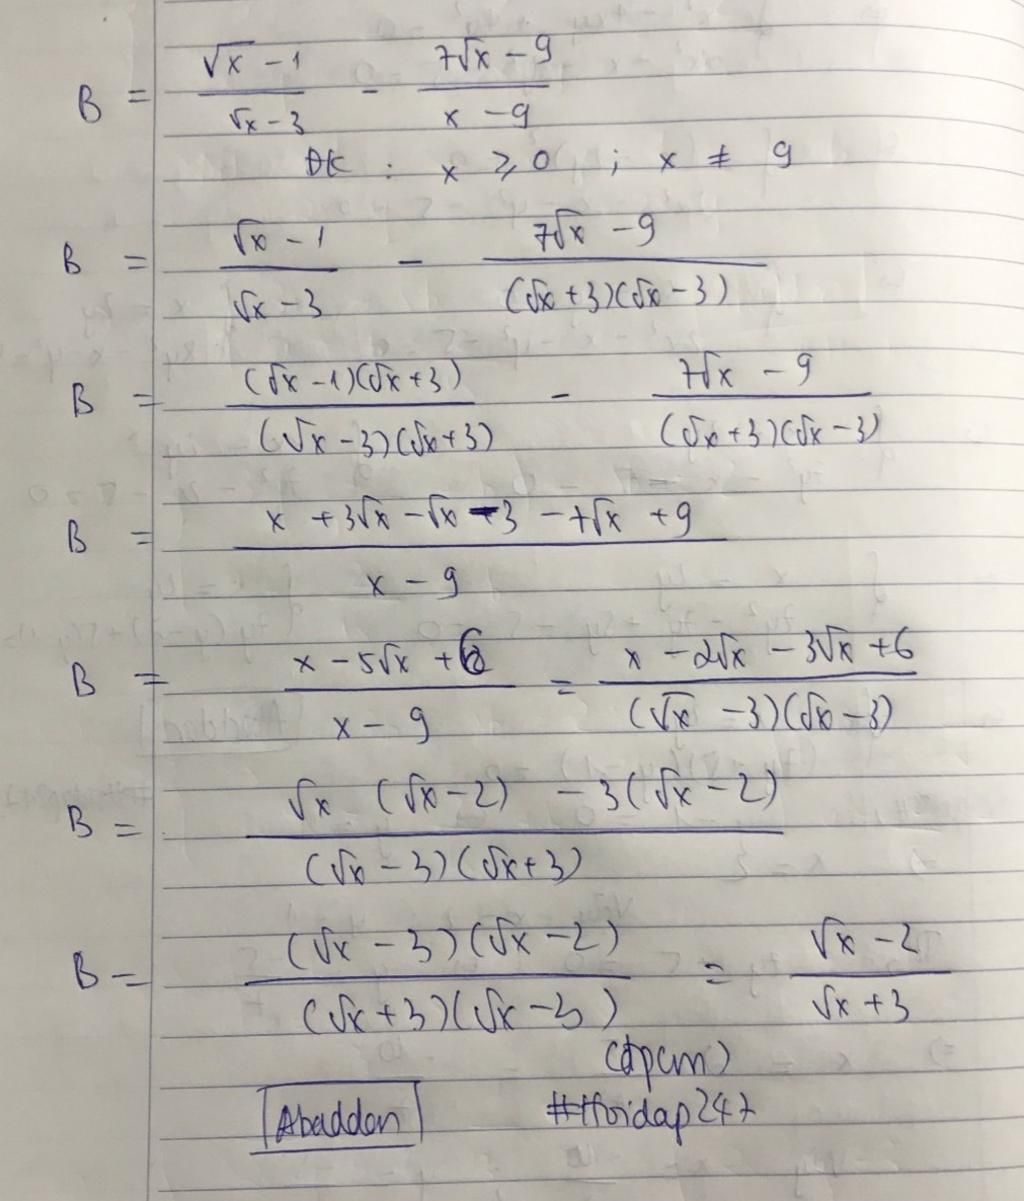 B = (√x - 1)/(√x - 3) - (7√x - 9)/(x - 9)
ĐK : x ⩾ 0 ; x ≠ 9
B = (√x - 1)/(√x - 3) - (7√x - 9)/((√x + 3)(√x - 3))
B = ((√x - 1)(√x + 3))/((√x - 3)(√x + 3)) - (7√x - 9)/((√x + 3)(√x - 3))
B = (x + 3√x - √x - 3 - 7√x + 9)/(x - 9)
B = (x - 5√x + 6)/(x - 9) = (x - 2√x - 3√x + 6)/((√x - 3)(√x - 3))
B = (√x (√x - 2) - 3(√x - 2))/((√x - 3)(√x + 3))
B = ((√x - 3)(√x - 2))/((√x + 3)(√x - 3)) = (√x - 2)/(√x + 3)
(đpcm)
Abaddon #Hoidap247